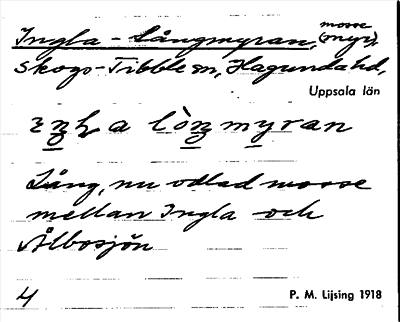 Ingla - Långmyran, mosse (myr),
Skogs-Tibble sn, Hagunda hd,
Uppsala län
a lòŋmyran
Lång, nu odlad mosse
mellan Ingla och
Ålbosjön
4 P. M. Lijsing 1918